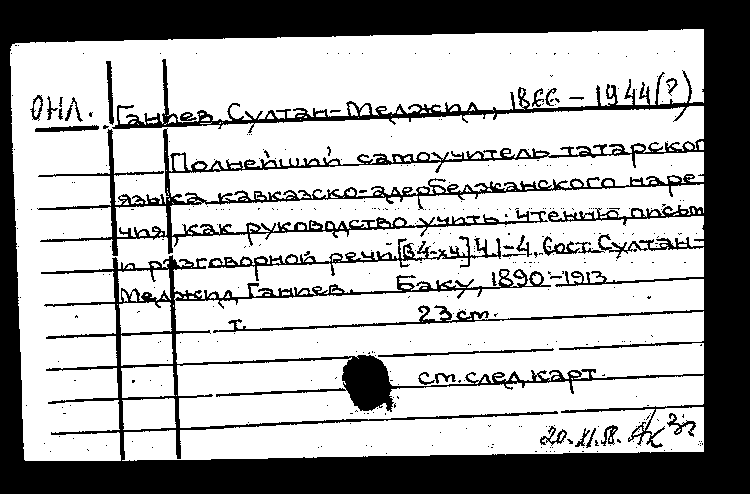 ОНЛ. Ганиев, Султан-Меджид, 1866 – 1944(?).
Полнейший самоучитель татарског
языка кавказско-адербеджанского наре-
чия, как руководство учить: чтению, письм
и разговорной речи. [В 4-х ч.] Ч. 1-4. Сост. Султан-
Меджид Ганиев. Баку, 1890-1913.
т. 23 cm.
см. след. карт.
20.XI.58.